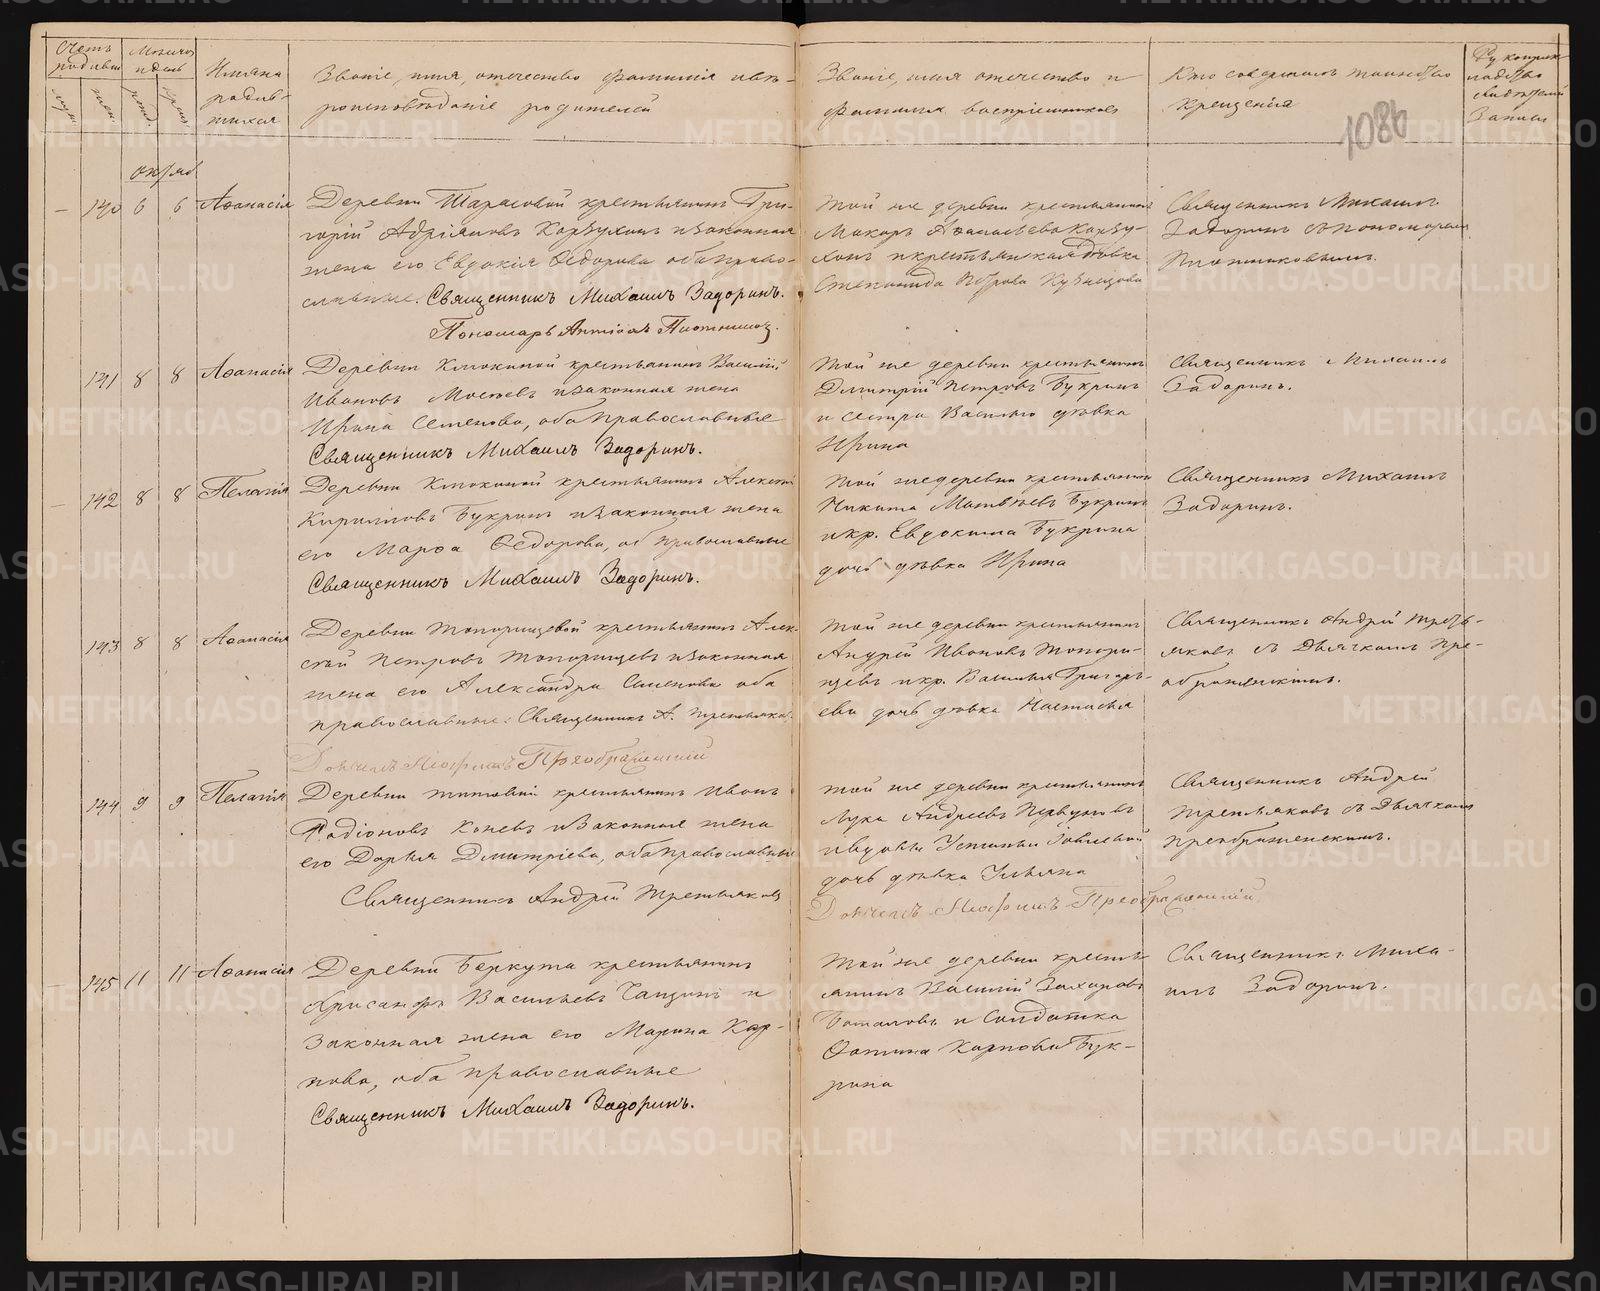 Счетъ родившихся
муж.
жен.
Мѣсяцъ и день
рожд.
крещ.
Имена родив-
шихся
Званіе, имя, отчество фамилія и вѣ-
роисповѣданіе родителей
Званіе, имя отчество и
фамилія воспріемниковъ
Кто совершалъ таинство
крещенія
Рукоприк-
ладство
свидѣтелей
записи
1086
октяб
140 6 6 Аѳанасія
Деревни Тарасовой крестьянинъ Гри-
горій Адріановъ и законная
жена его Евдокія Ѳедорова оба право-
славные. Священникъ Михаилъ Задоринъ.
Пономарь Плотниковъ.
Той же деревни крестьянинъ
Макаръ Аѳанасьевъ
и крестьянская дѣвка
Степанида Петрова Кузнецова
Священникъ Михаилъ
Задоринъ съ пономаремъ
Плотниковымъ.
141 8 8 Аѳанасія
Деревни Клюкиной крестьянинъ Василій
Ивановъ и законная жена
Ирина Семенова, оба православные
Священникъ Михаилъ Задоринъ.
Той же деревни крестьянинъ
Дмитрій Петровъ Букринъ
и сестра Василью дѣвка
Ирина
Священникъ Михаилъ
Задоринъ.
142 8 8 Пелагія
Деревни Клюкиной крестьянинъ Алексѣй
Кириловъ Букринъ и законная жена
его Марѳа Ѳедорова, об православные
Священникъ Михаилъ Задоринъ.
Той же деревни крестьянинъ
Никита Матвѣевъ Букринъ
и кр. Евдокима Букрина
дочь дѣвка Ирина
Священникъ Михаилъ
Задоринъ.
143 8 8 Аѳанасія
Деревни Топорищевой крестьянинъ Алек-
сѣй Петровъ Топорищевъ и законная
жена его Александра Семенова оба
православные: Священникъ А. Третьяковъ.
Дьячекъ Преображенскій
Той же деревни крестьянинъ
Андрей Ивановъ Топори-
щевъ и кр. Василья Григорь-
ева дочь дѣвка Настасья
Священникъ Андрей Треть-
яковъ съ Дьячкомъ Пре-
ображенскимъ.
144 9 9 Пелагія
Деревни Титовой крестьянинъ Иванъ
Радіоновъ Коневъ и законная жена
его Дарья Дмитріева, оба православные
Священникъ Андрей Третьяковъ
Той же деревни крестьянинъ
Лука Андреевъ
и вдовы Устиньи
дочь дѣвка Ульяна
Дьячекъ Преображенскій
Священникъ Андрей
Третьяковъ съ Дьячкомъ
Преображенскимъ.
145 11 11 Аѳанасія
Деревни Беркута крестьянинъ
Хрисанфъ Васильевъ и
законная жена его Марина Кар-
пова, оба православные
Священникъ Михаилъ Задоринъ.
Той же деревни кресть-
янинъ Василій Захаровъ
Боталовъ и Солдатка
Фотина Карпова Бук-
рина
Священникъ Миха-
илъ Задоринъ.
METRIKI.GASO-URAL.RU